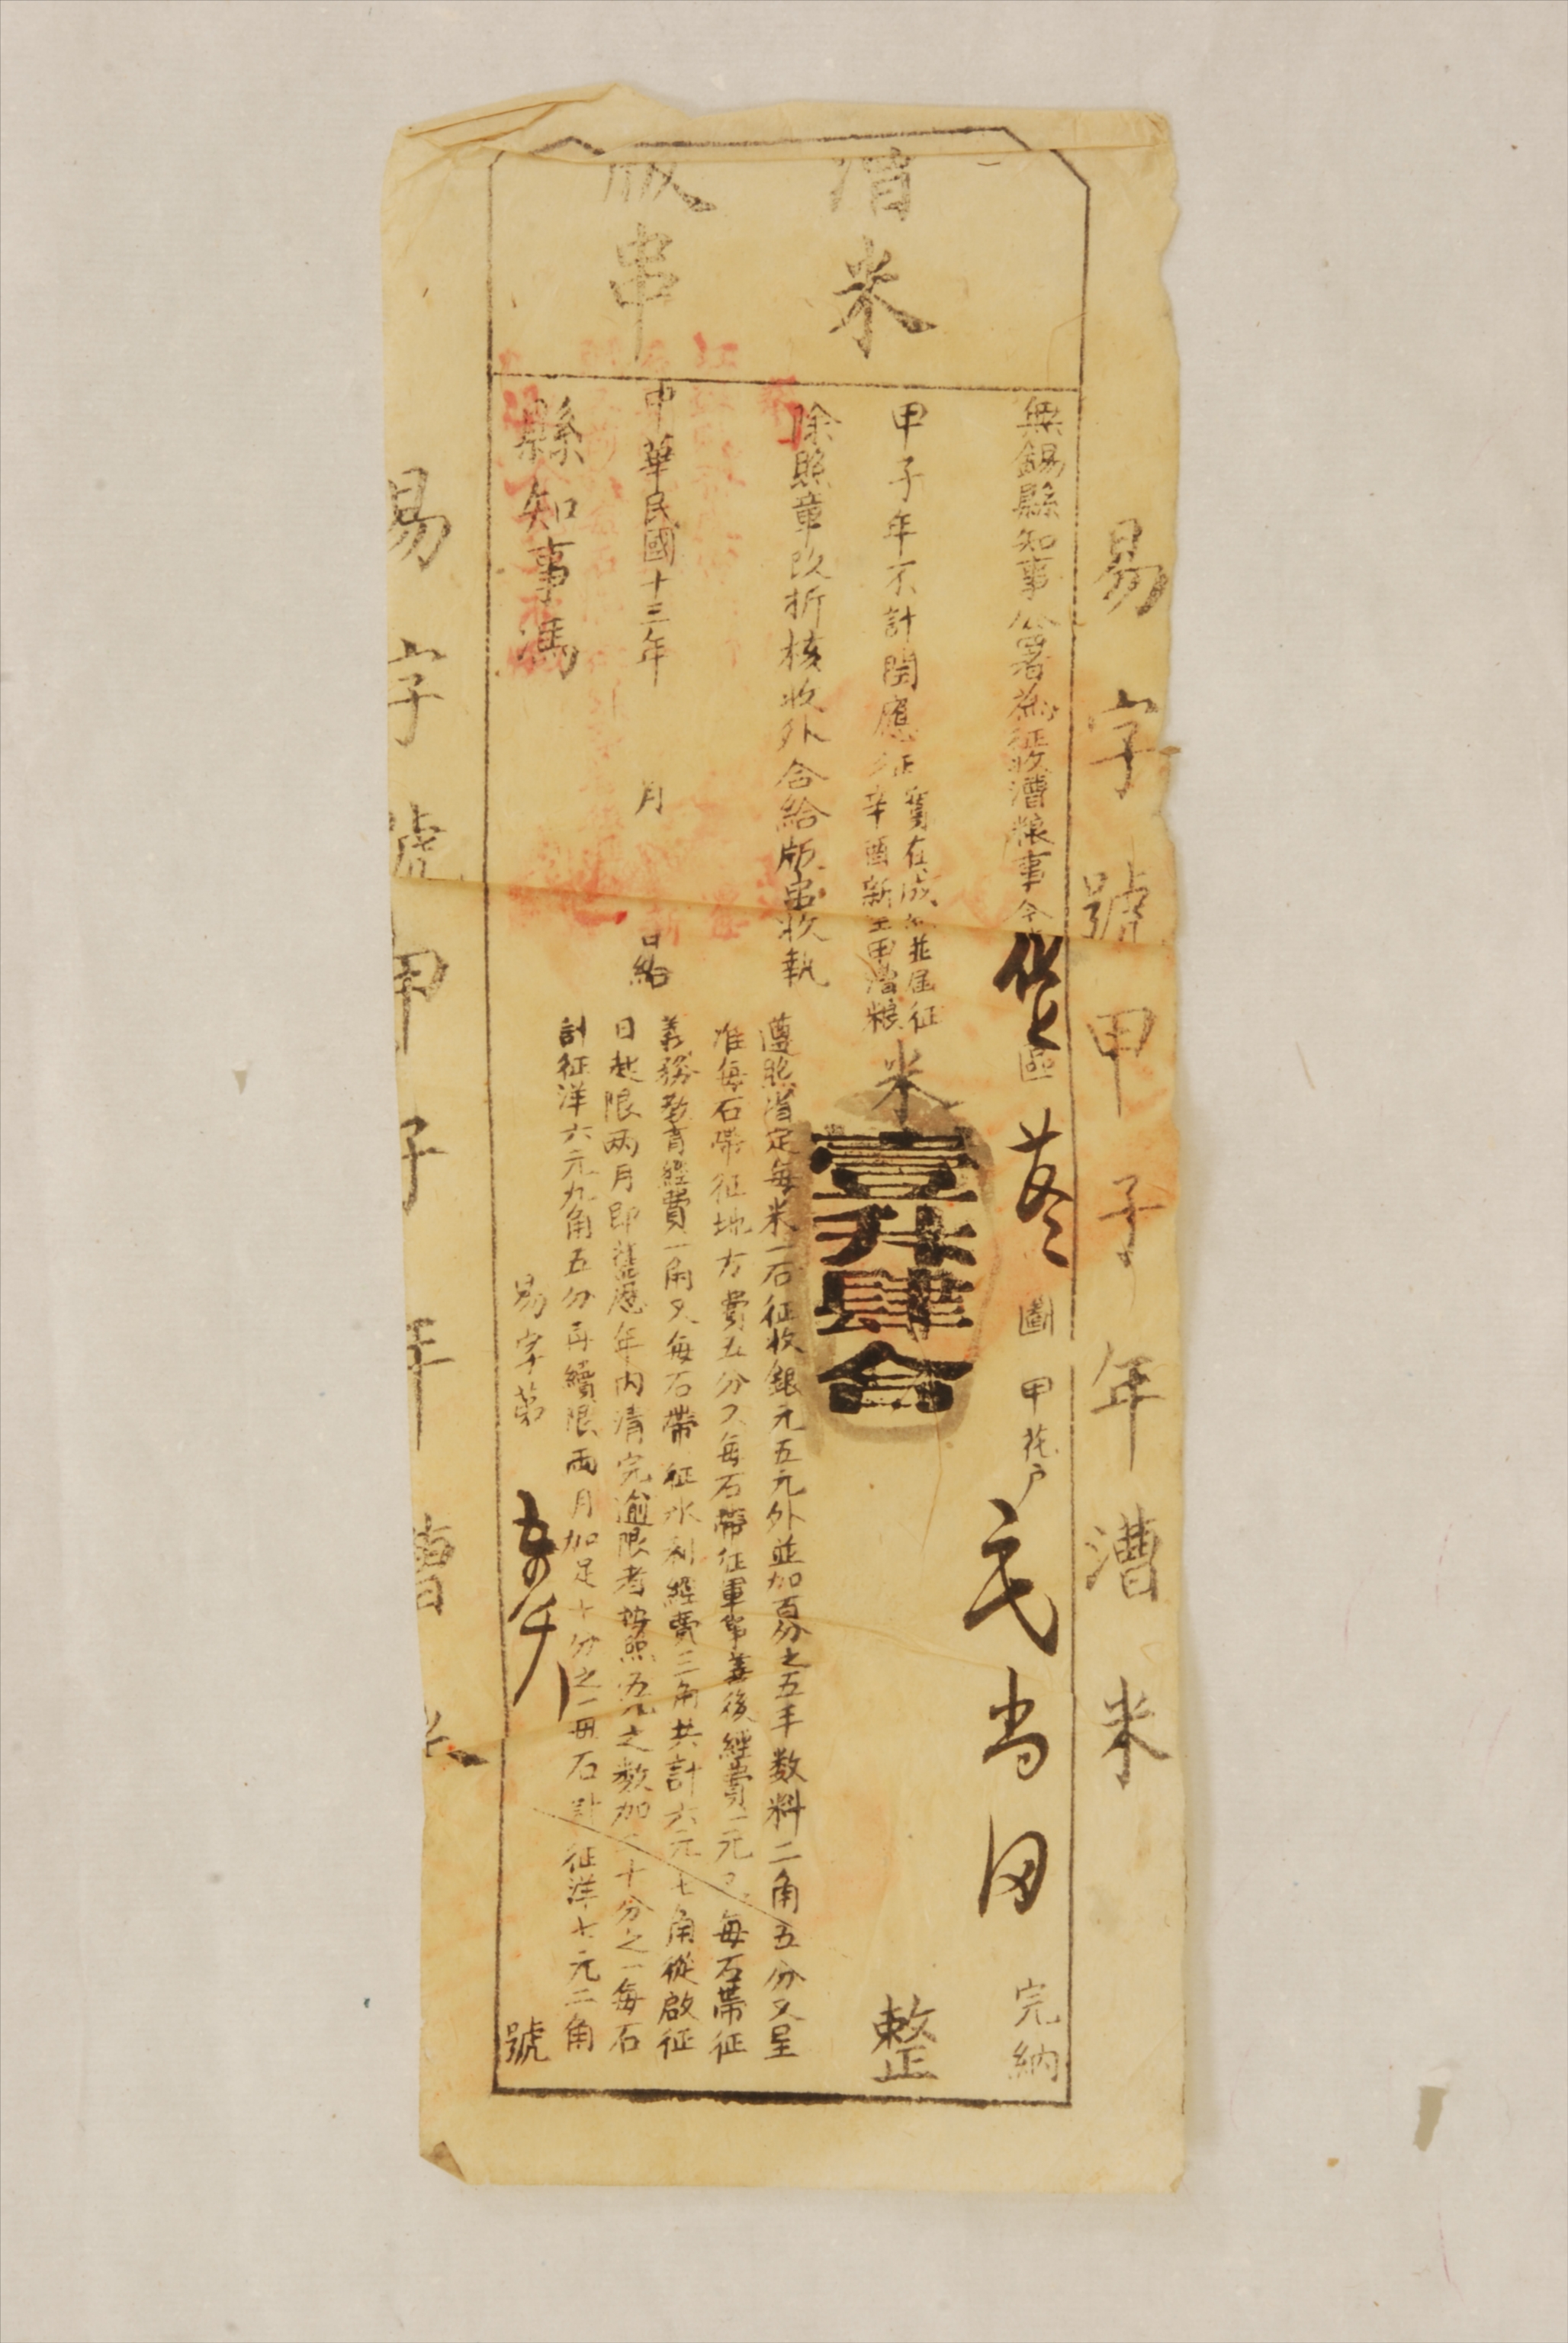 易字號甲子年漕米
漕米
版串
無錫縣知事公署為征收漕糧事今
區
圖
甲花戶
完納
甲子年不計閏應征
舊在成熟並屆征
辛酉新墾甲漕糧
米壹升肆合
整
除照章改折核收外合給版串收執
遵照省定每米一石征收銀元五元外並加百分之五手数料二角五分又呈
准每石帶征地方費五分又每石帶征軍事善後經費一元又每石帶征
義務教育經費一角又每石帶征水利經費三角共計六元七角從啟征
日起限兩月即舊歷年內清完逾限者按照五元之數加二十分之一每石
計征洋六元九角五分再續限兩月加足十分之一每石計征洋七元二角
中華民國十三年 月 日給
縣知事馮
易字第
號
易字號甲子年漕米